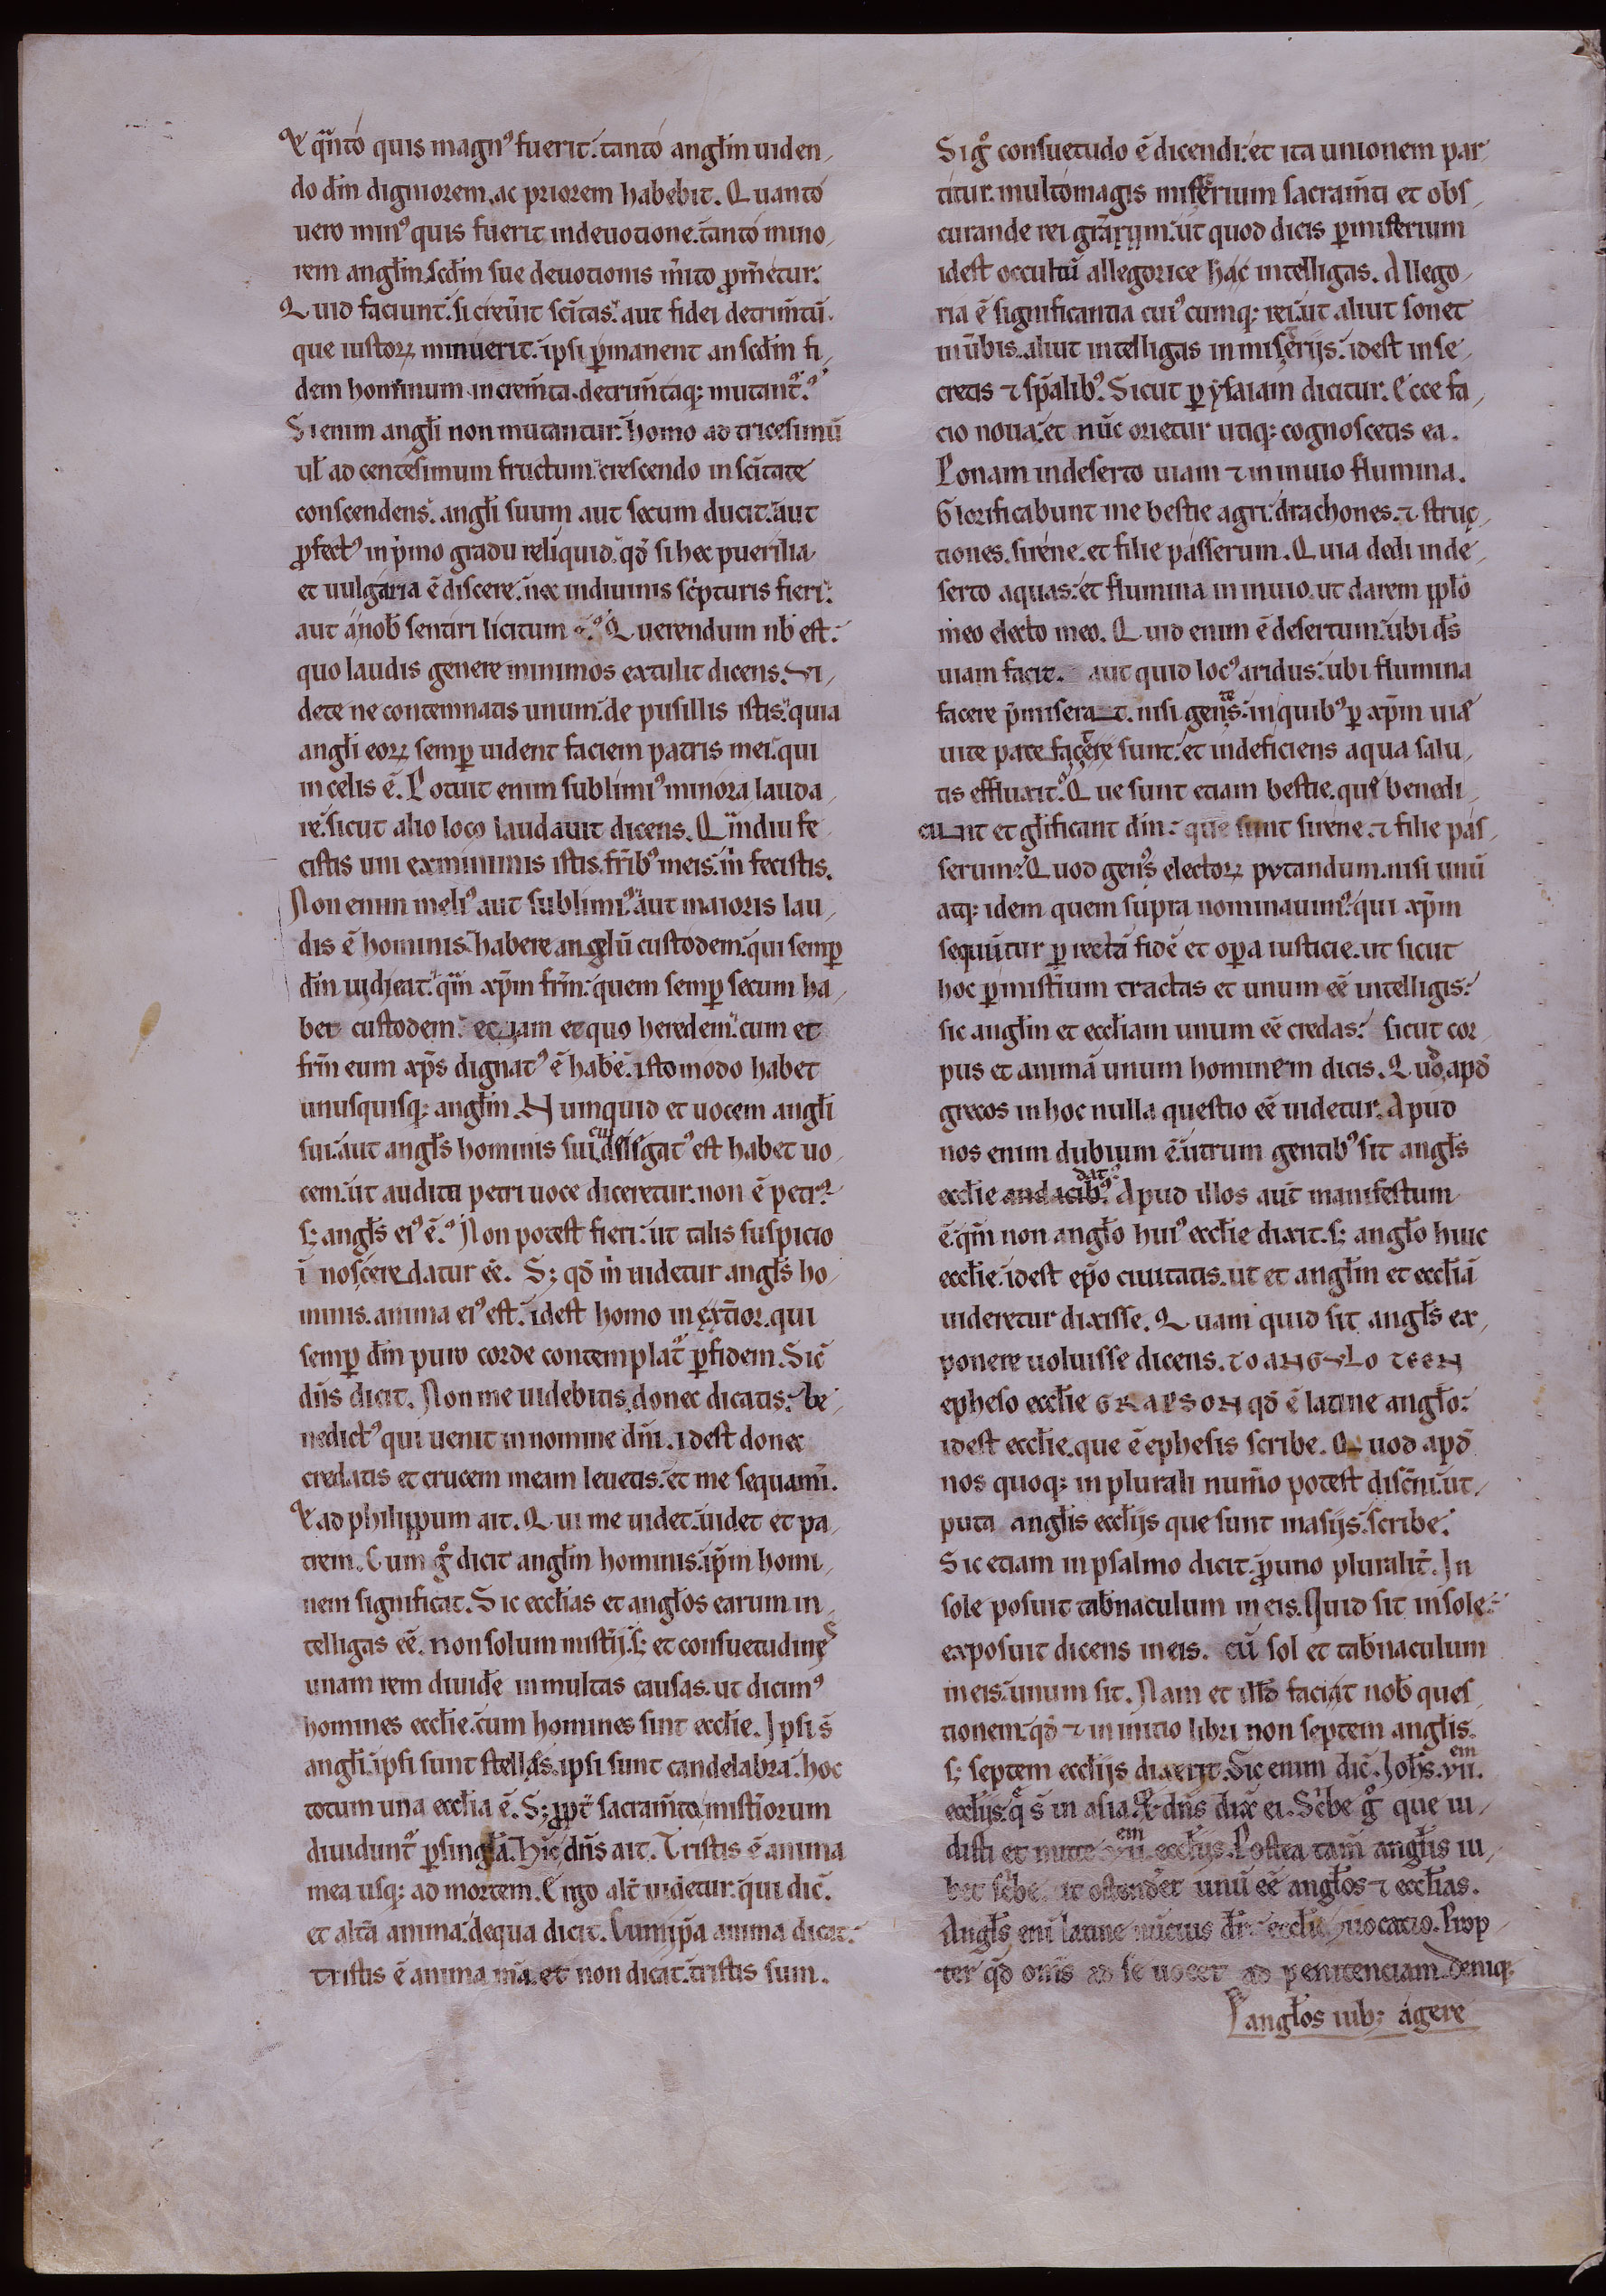 Et q̄nto quis magnꝰ fuerit. tanto angl̄m uiden
do dm̄ digniorem, ac priorem habebit. Quanto
uero minꝰ quis fuerit indeuotione. tanto mino
rem angl̄m. scd̄m sue deuotionis m̄ito ꝓm̄etur.
Quid faciunt. si creu̅it sc̄itas. aut fidei detrim̄tū.
que iustoꝝ minuerit. ipsi ꝑmanent an scd̄m fi
dem hominum increm̄ta. detrim̄taq; mutant᷑.
Si enim angl̄i non mutantur. homo ad tricesimū
ul̄ ad centesimum fructum crescendo in sc̄itate
conscendens. angl̄i suum aut secum ducit. aut
ꝓfectꝰ in p̄mo gradu reliquid. qd̄ si hec puerilia
et uulgaria ē discere. nec indiuinis sc̄pturis fieri.
aut a nob̄ sentiri licitum ē. Querendum nb̄ est.
quo laudis genere minimos extulit dicens. Vi
dete ne contemnatis unum. de pusillis istis. quia
angl̄i eoꝝ semꝑ uident faciem patris mei. qui
in celis ē. Potuit enim sublimiꝰ minora lauda
re. sicut alio loco laudauit dicens. Qm̄diu fe
cistis uni exminimis istis. frīb; meis. m̄ fecistis.
Non enim meliꝰ aut sublimiꝰ. aut maioris lau
dis ē hominis. habere angelū custodem. qui semꝑ
dm̄ uideat. qm̄ xp̄m frm̄. quem semꝑ secum ha
bet custodem. etiam et quo heredem. cum et
frm̄ eum xp̄s dignatꝰ ē habe. isto modo habet
unusquisq; angl̄m. Numquid et uocem angl̄i
sui. aut angl̄s hominis sui cui deligatꝰ est habet uo
cem. ut audita petri uoce diceretur. non ē petrꝰ
s; angl̄s eiꝰ ē. Non potest fieri. ut talis suspicio
ī noscere datur eē. S; qd̄ m̄ uidetur angl̄s ho
minis. anima eiꝰ est. idest homo in exterior. qui
semꝑ dm̄ puro corde contemplat᷑ ꝑfidem. Sic̄
dn̄s dicit. Non me uidebitis donec dicatis. be
nedictꝰ qui uenit in nomine dn̄i. idest donec
credatis et crucem meam leuetis. et me sequam̄i.
Et ad philippum ait. Qui me uidet. uidet et pa
trem. Cum gͦ dicit angl̄m hominis. ip̄m homi
nem significat. Sic eccl̄ias et angl̄os earum in
telligas eē. non solum mistīj. s; et consuetudine
unam rem diuidē in multas causas. ut dicimꝰ
homines eccl̄ie. cum homines sint eccl̄ie. Ipsi s̄
angl̄i. ipsi sunt stellas. ipsi sunt candelabra. hoc
totum una eccl̄ia ē. S; ꝓpt̄ sacram̄ta mist̄iorum
diuidunt᷑ ꝑsingl̄a. Hic dn̄s ait. Tristis ē anima
mea usq; ad mortem. Ergo alt̄ uidetur. qui dic̄.
et alt̄a anima. dequa dicit. Cum ip̄a anima dicat.
tristis ē anima m̄a. et non dicat. tristis sum.
Si gͦ consuetudo ē dicendi. et ita unionem par
titur. multo magis misterium sacram̄ti et obs
curande rei grārum. ut quod dicis ꝑmisterium
idest occultū allegorice hac intelligas. Allego
ria ē significantia cuiꝰcumq; rei. ut aliut sonet
inūbis. aliut intelligas in miserijs. idest in se
cretis ⁊ sp̄alibꝰ. Sicut ꝑ ysaiam dicitur. Ecce fa
cio noua. et nūc orietur utiq; cognoscetis ea.
Ponam indeserto uiam ⁊ in inuio flumina.
Glorificabunt me bestie agri. drachones. ⁊ struc
tiones. sirene. et filie passerum. Quia dedi inde
serto aquas. et flumina in inuio. ut darem ppl̄o
meo electo meo. Quid enim ē desertum. ubi ds̄
uiam facit. aut quid locꝰ aridus. ubi flumina
facere ꝓmiserat. nisi gentes. in quibꝰ ꝑ xp̄m uiae
uite patefacere sunt. et indeficiens aqua salu
tis effluxit. Que sunt etiam bestie. que benedi
cunt et gl̄ificant dm̄. que sunt sirene. ⁊ filie pas
serum. Quod genꝰs electoꝝ putandum. nisi unū
atq; idem quem supra nominauimꝰ. qui xp̄m
sequūtur ꝑ rectā fidē et oꝑa iusticie. ut sicut
hoc ꝑmist̄ium tractas et unum eē intelligis.
sic angl̄m et eccl̄iam unum eē credas. sicut cor
pus et animā unum hominem dicis. Quod apd̄
grecos in hoc nulla questio eē uidetur. Apud
nos enim dubium ē. utrum gentibꝰ sit angl̄s
eccl̄ie audacibꝰ datꝰ. Apud illos aut̄ manifestum
ē. qm̄ non angl̄o huiꝰ eccl̄ie dixit. s; angl̄o huic
eccl̄ie. idest ep̄o ciuitatis. ut et angl̄m et eccl̄iā
uideretur dixisse. Quam quid sit angl̄s ex
ponere uoluisse dicens. TO ANGYLO TEEN
epheso eccl̄ie GRAPSON qd̄ ē latine angl̄o.
idest eccl̄ie. que ē ephesis scribe. Quod apd̄
nos quoq; in plurali num̄o potest disc̄ni. ut
puta angl̄is eccl̄ijs que sunt inasijs. scribe.
Sic etiam in psalmo dicit. ꝓuno pluralit̄. In
sole posuit tab̄naculum in eis. Quid sit insole.
exposuit dicens in eis. cū sol et tab̄naculum
in eis. unum sit. Nam et illd̄ faciat nob̄ ques
tionem. qd̄ ⁊ in initio libri non septem angl̄is.
s; septem eccl̄ijs dixerit. Sic enim dic̄. Joh̄s. vii.em
eccl̄ijs. q̄ s̄ in asia. Et dn̄s dix̄ ei. Sc̄be gͦ que ui
disti et mitte vii.em eccl̄ijs. Postea tam̄ angl̄is iu
bet sc̄be. ut ostenderet unū eē angl̄os ⁊ eccl̄ias.
Angl̄s eni latine nūcius dr̄. eccl̄ie uocatio. Prop
ter qd̄ om̄s ad se uocet ad penitenciam. Deniq;
angl̄os iub; agere